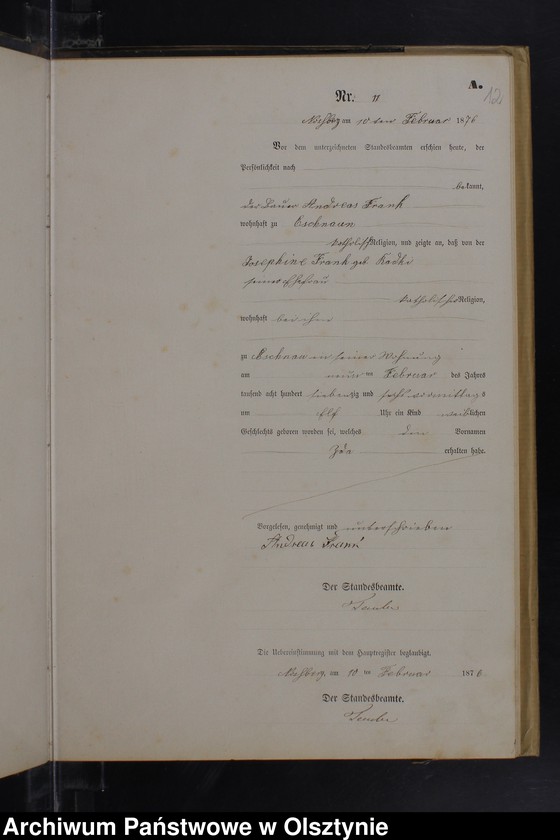 A.
12
Nr. 11
am 10ten Februar 1876
Vor dem unterzeichneten Standesbeamten erschien heute, der
Persönlichkeit nach
bekannt,
der Bauer Andreas Frank
wohnhaft zu
katholischer Religion, und zeigte an, daß von der
Josephine Frank geb.
seiner Ehefrau
katholischer Religion,
wohnhaft bei ihm
zu in seiner Wohnung
am neunten Februar des Jahres
tausend acht hundert siebenzig und sechs vormittags
um elf Uhr ein Kind weiblichen
Geschlechts geboren worden sei, welches den Vornamen
Ida erhalten habe.
Vorgelesen, genehmigt und unterschrieben
Andreas Frank
Der Standesbeamte.
Die Uebereinstimmung mit dem Hauptregister beglaubigt.
am 10ten Februar 1876
Der Standesbeamte.
Archiwum Państwowe w Olsztynie